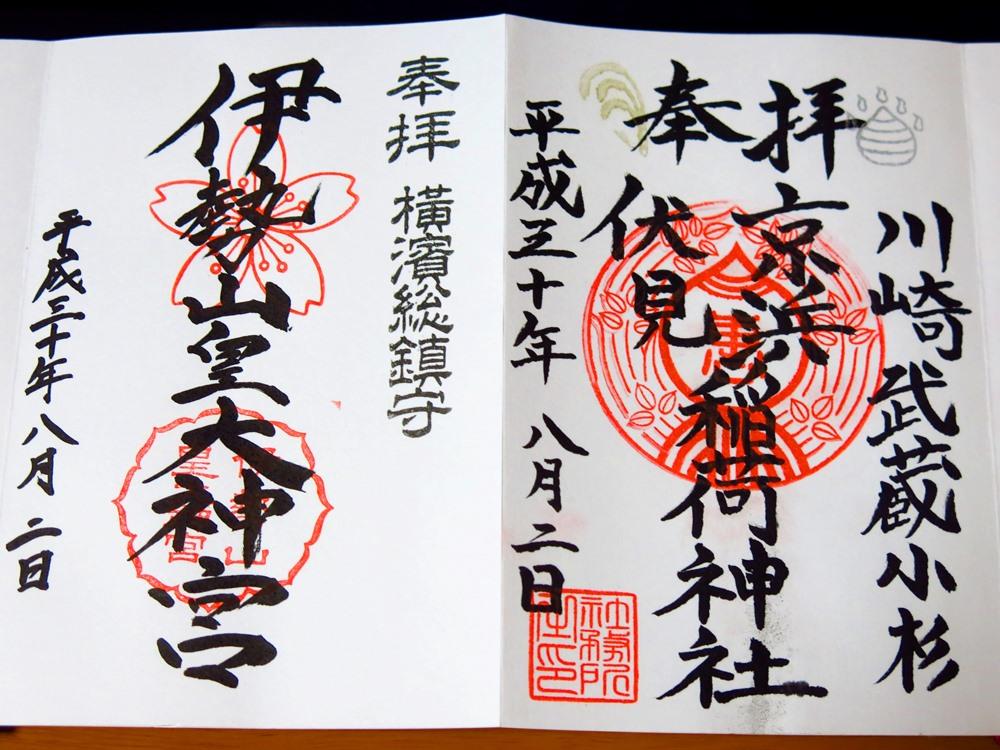 川崎武蔵小杉
奉拝
京浜
伏見
稲荷神社
平成三十年 八月二日
社務所
之印
奉拝 横濱総鎮守
伊勢山皇大神宮
平成三十年八月二日